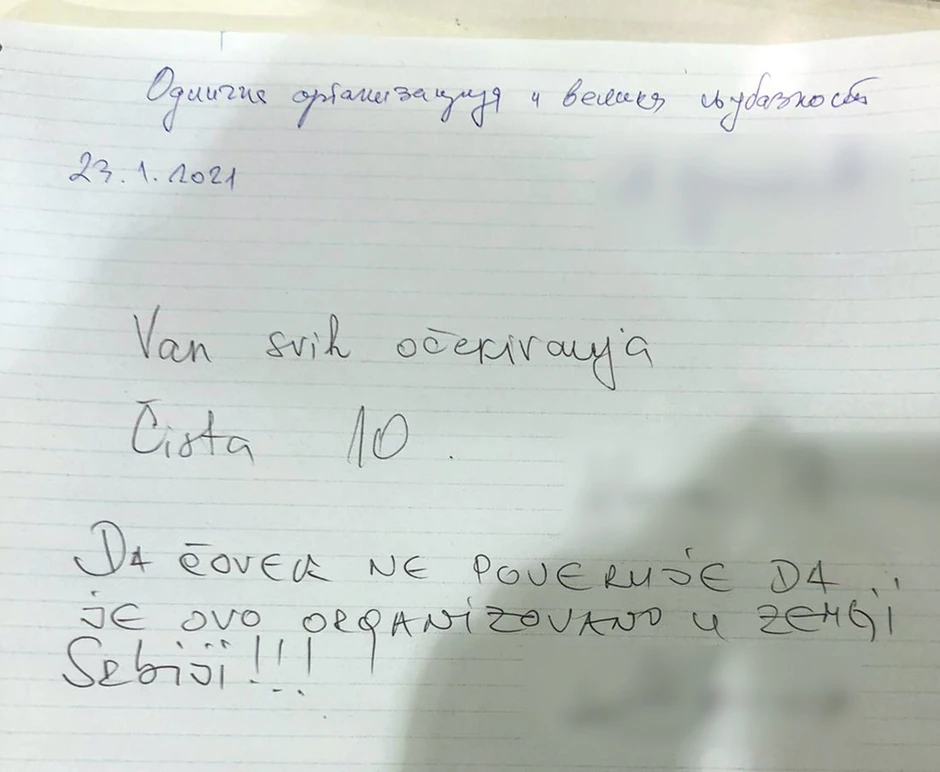 Одлична организација и велика љубазност
23.1.2021
Van svih očekivanja
Čista 10.
DA ČOVEK NE POVERUJE DA
JE OVO ORGANIZOVANO U ZEMLJI
Srbiji!!!